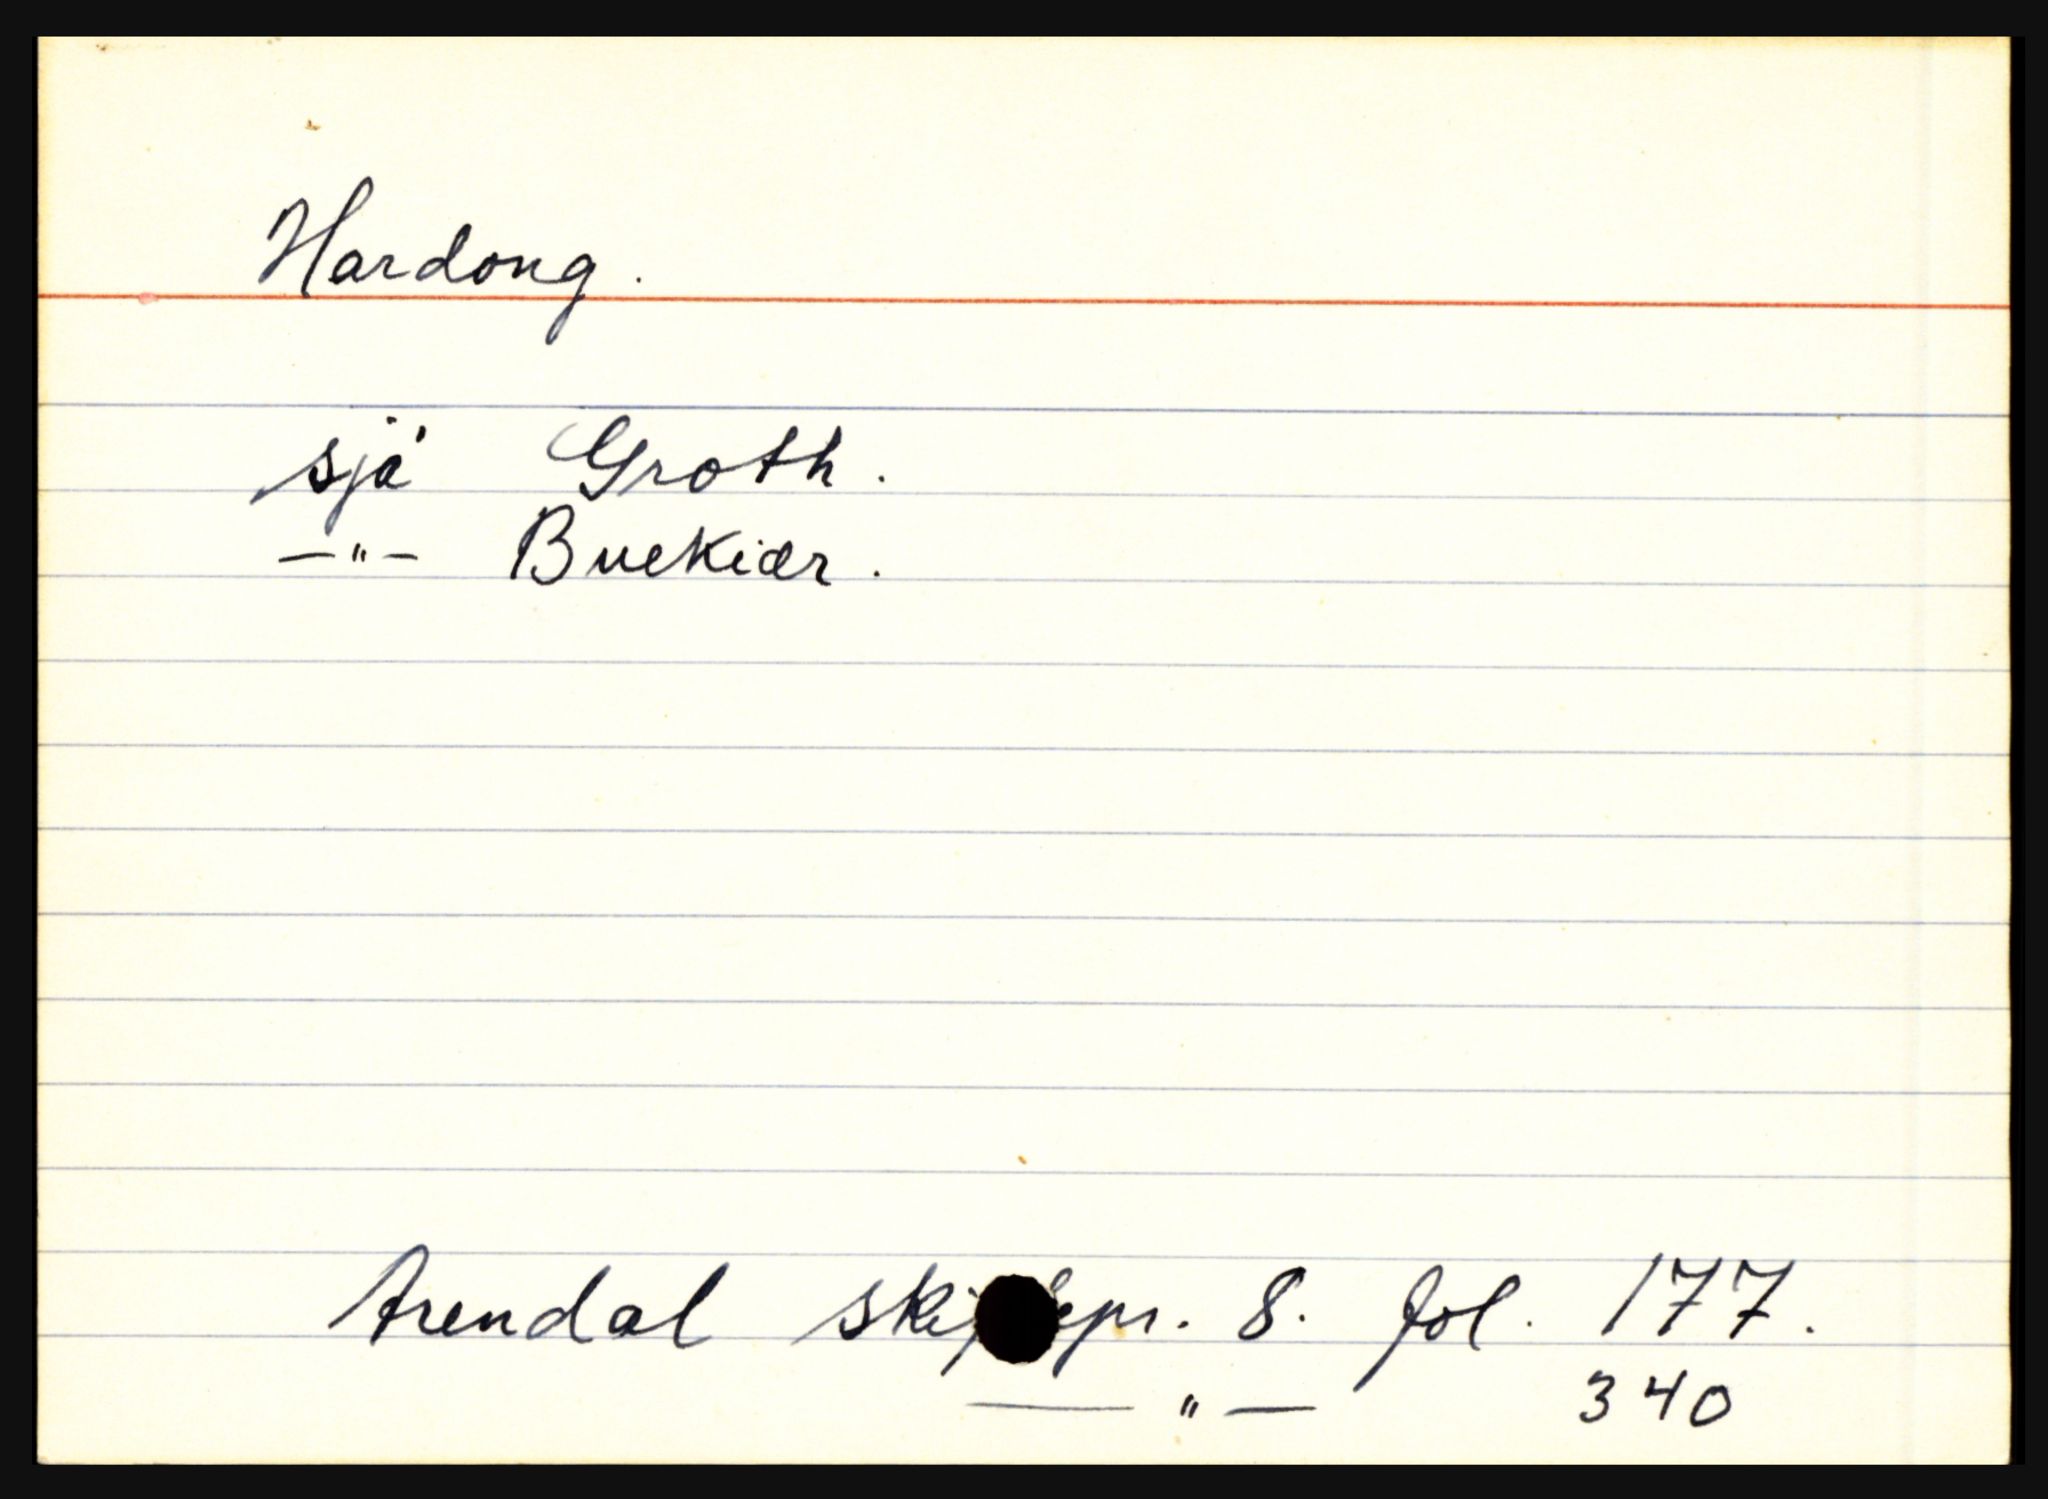 Hardong.
sjå Groth.
—"— Buekiær.
Arendal pr. 8. fol. 177.
—"— 340